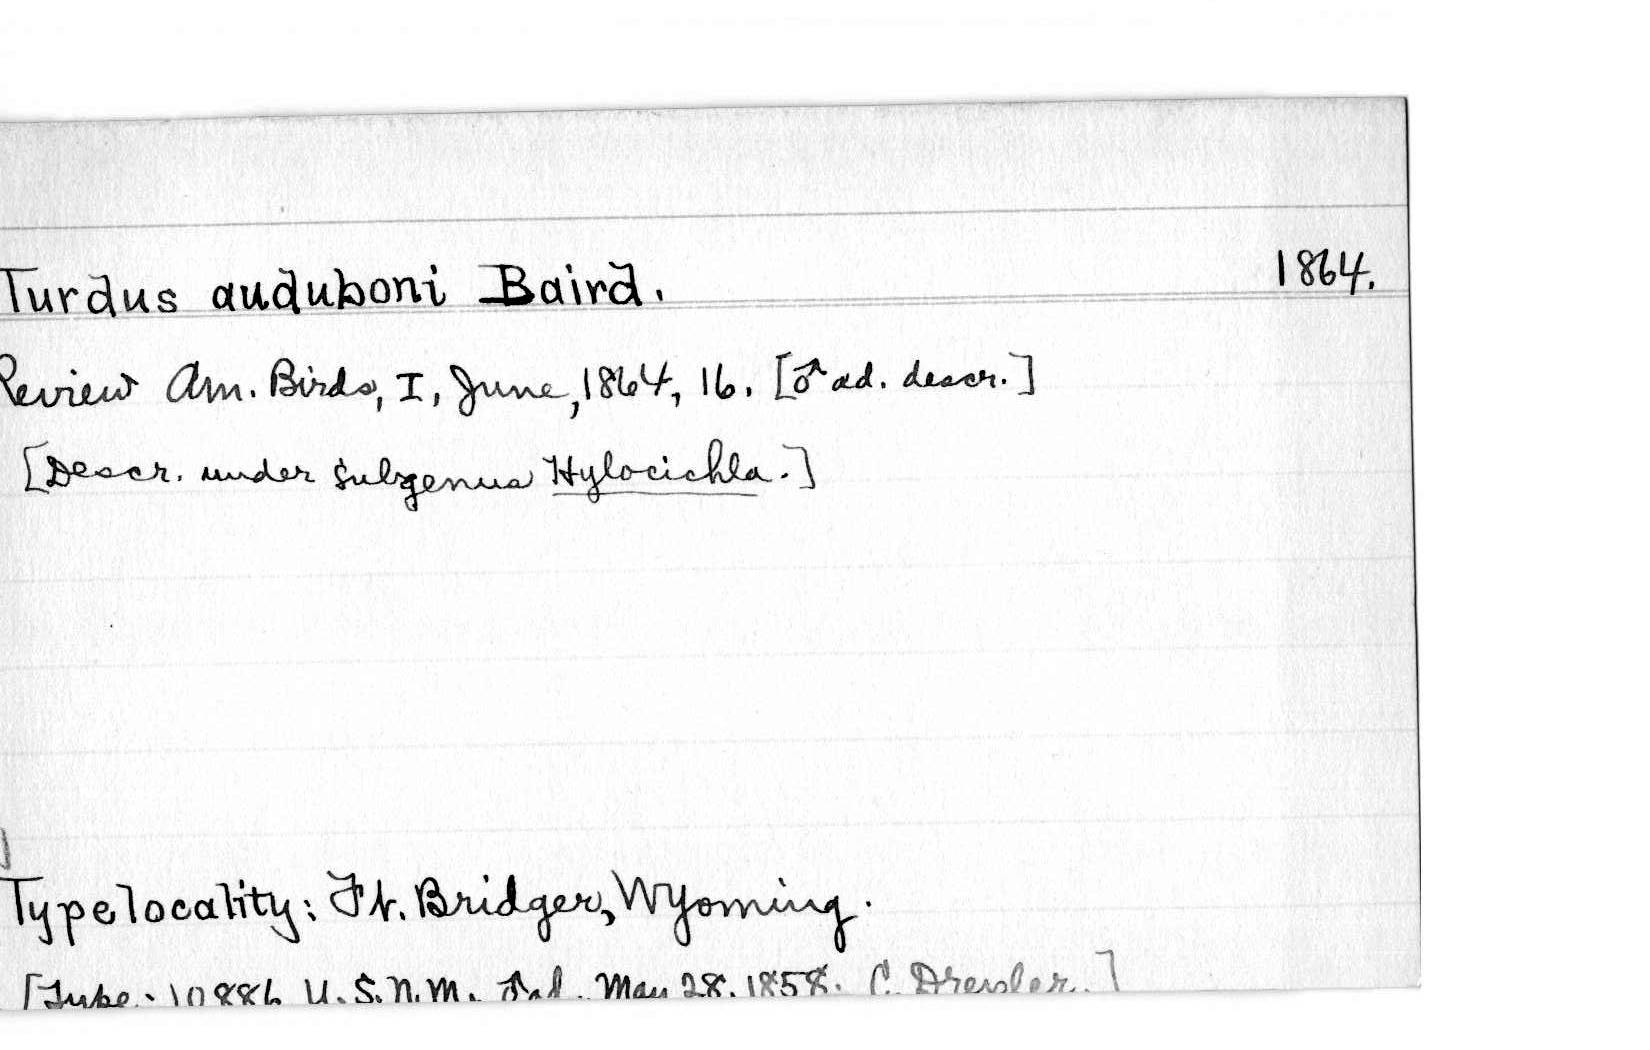 Turdus auduboni Baird. 1864.
Review Am. Birds, I, June, 1864, 16. [♂ ad. descr.]
[Descr. under subgenus Hylocichla.]
]
Type locality: Ft. Bridger, Wyoming.
[Type: 10886 U.S.N.M. ♂ ad. May 28, 1858. C. Drexler.]